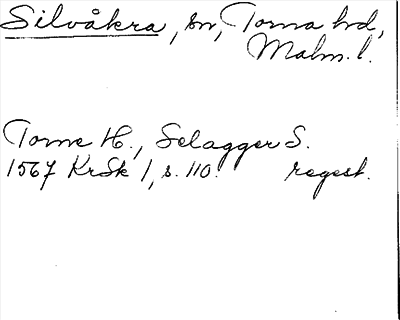 Silvåkra, sn, Torna hd,
Malm. l.
Torne H., Selagger S.
1567 KrSk 1, s. 110. regest.